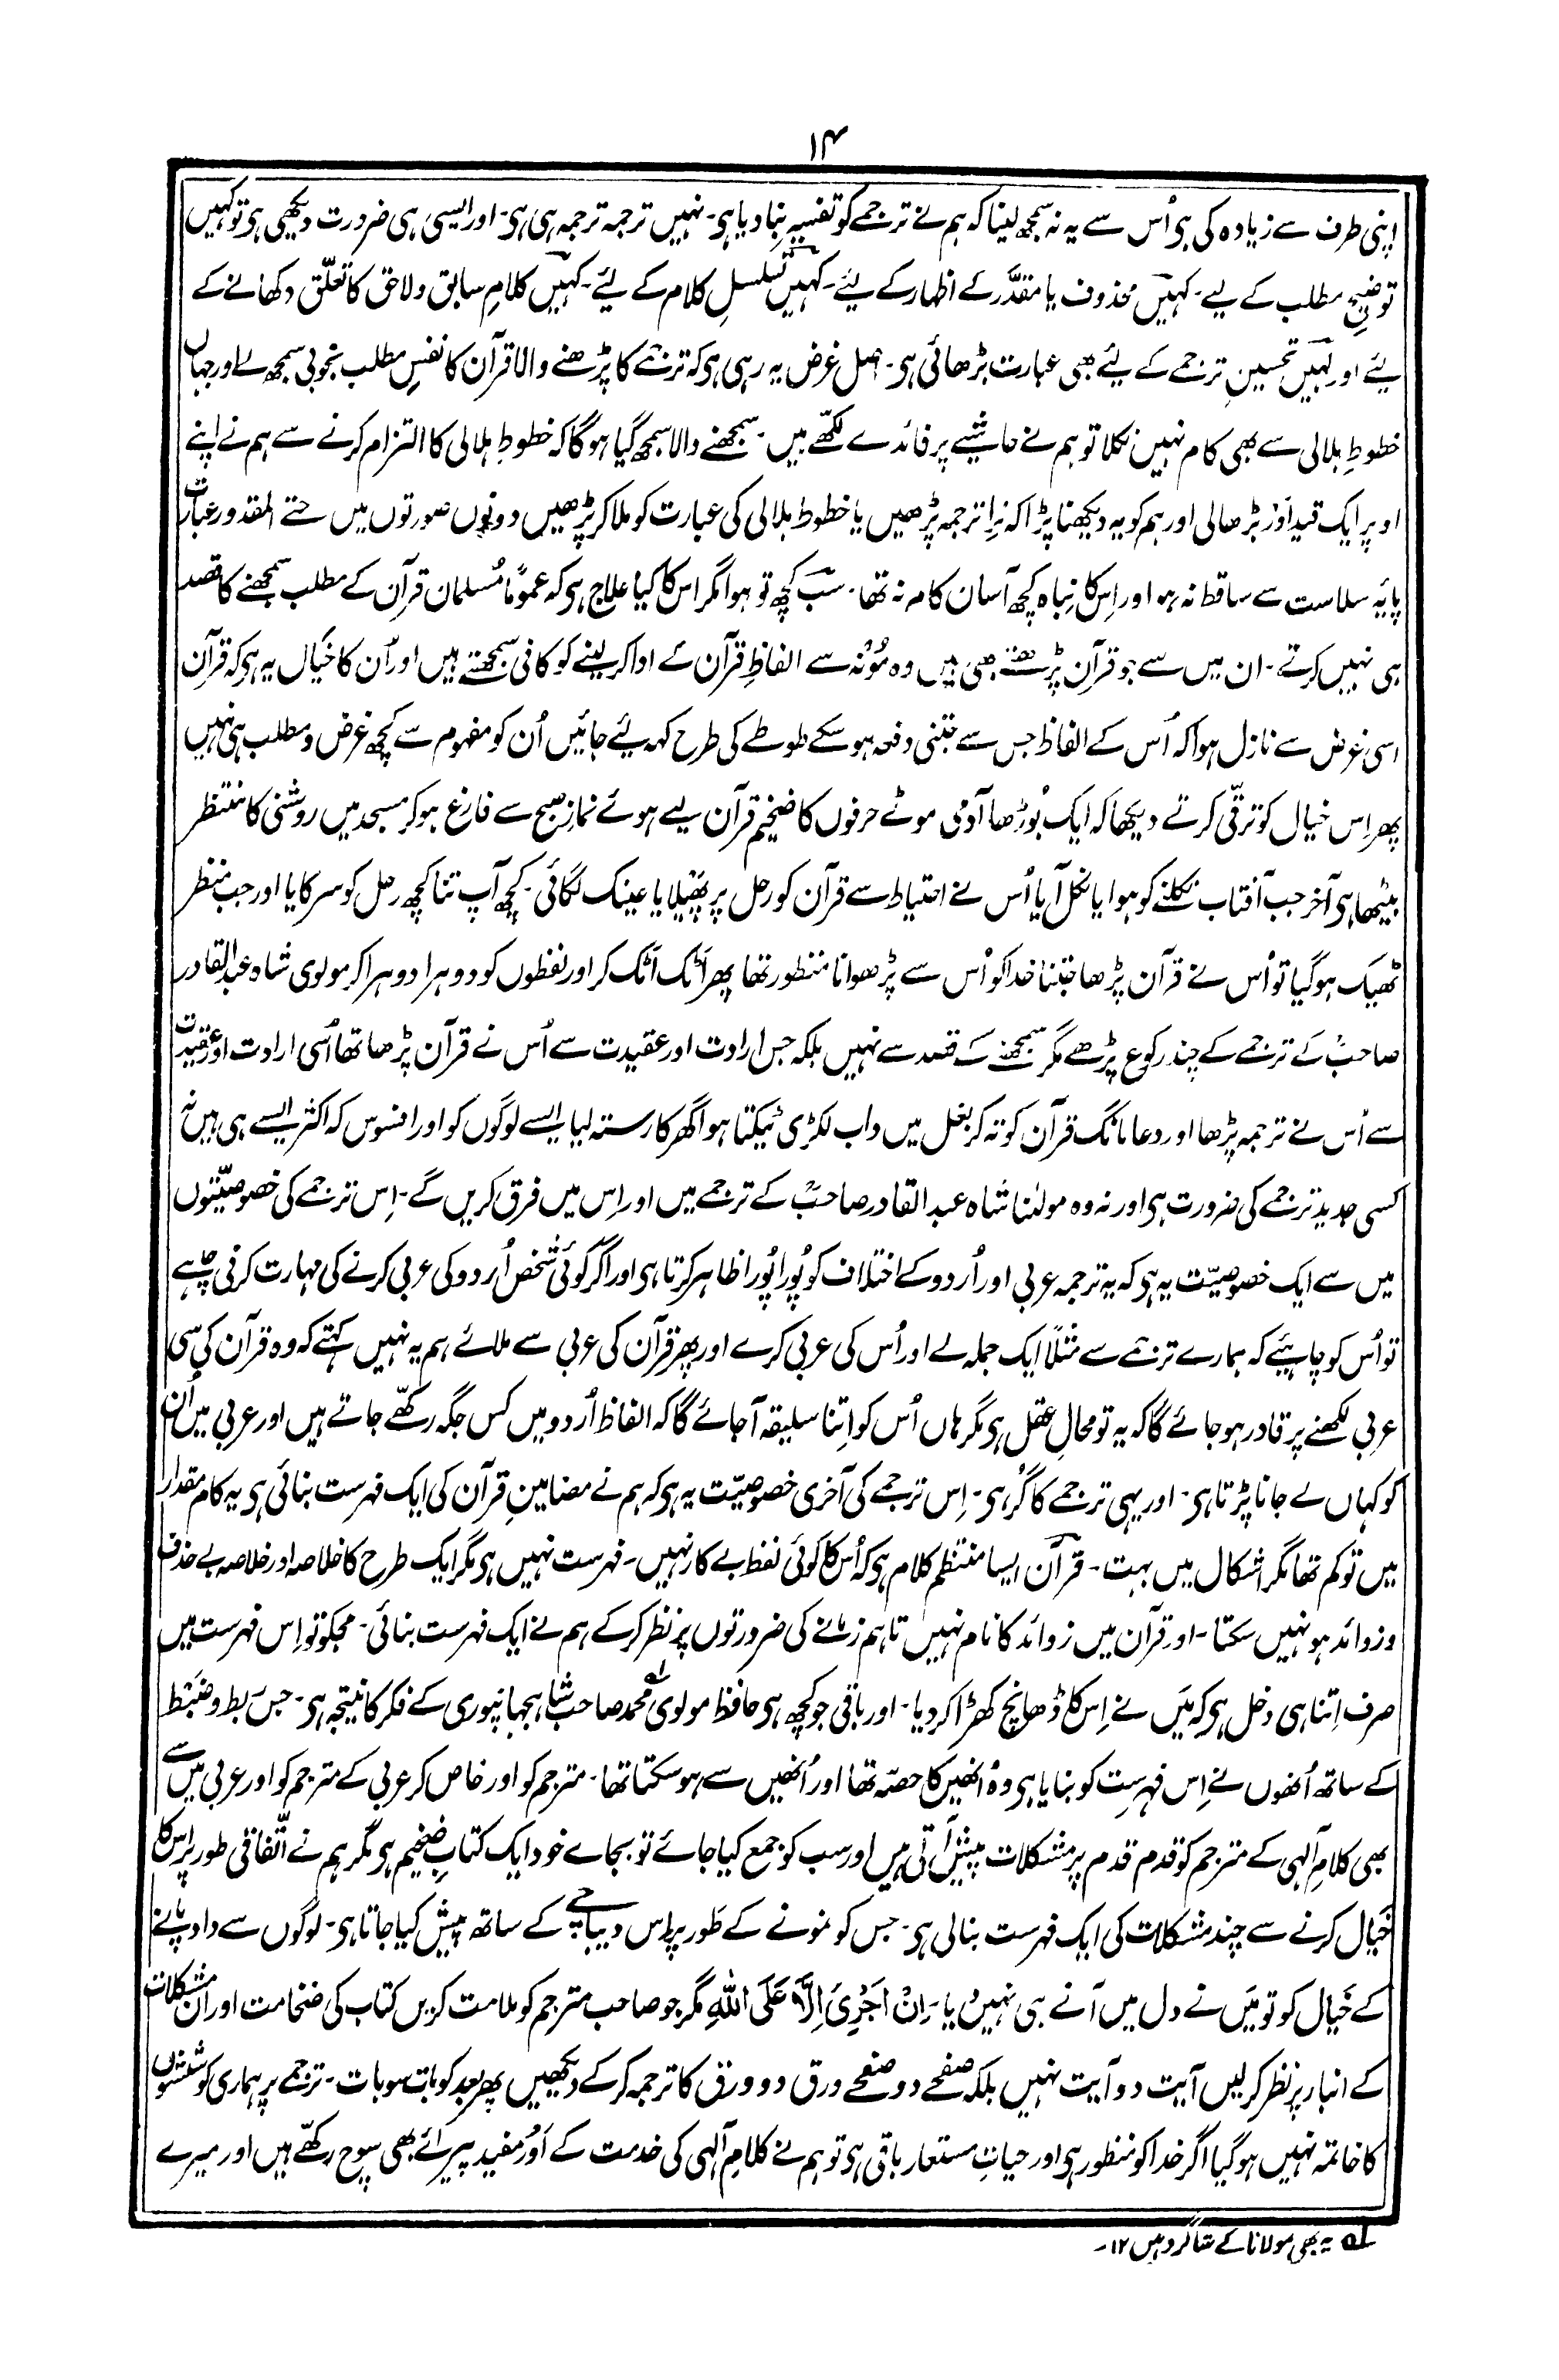 ۱۴
اپنی طرف سے زیادہ کی ہی اُس سے یہ نہ سمجھ لینا کہ ہم نے ترجمے کو تفسیر بنا دیا ہی۔ نہیں ترجمہ ترجمہ ہی ہی۔ اور ایسی ہی ضرورت دیکھی ہی تو کہیں
توضیحِ مطلب کے لیے۔ کہیں محذوف یا مقدَّر کے اظہار کے لیئے۔ کہیں تسلسلِ کلام کے لیئے۔ کہیں کلامِ سابق و لاحق کا تعلّق دکھانے کے
لیئے اور کہیں تحسینِ ترجمے کے لیئے بھی عبارت بڑھائی ہی۔ اصل غرض یہ رہی ہی کہ ترجمے کا پڑھنے والا قرآن کا نفسِ مطلب بخوبی سمجھ لے اور جہاں
خطوطِ ہلالی سے بھی کام نہیں نکلا تو ہم نے حاشیے پر فائدے لکھّے ہیں۔ سمجھنے والا سمجھ گیا ہوگا کہ خطوطِ ہلالی کا التزام کرنے سے ہم نے اپنے
اوپر ایک قید اَور بڑھالی اور ہم کو یہ دیکھنا پڑا کہ نرا ترجمہ پڑھیں یا خطوط ہلالی کی عبارت کو ملا کر پڑھیں دونوں صورتوں میں حتے المقدور عبارت
پایۂ سلاست سے ساقط نہ ہو اور اِس کا نباہ کچھ آسان کام نہ تھا۔ سب کچھ تو ہوا مگر اس کا کیا علاج ہی کہ عموماً مُسلمان قرآن کے مطلب سمجھنے کا قصد
ہی نہیں کرتے۔ ان میں سے جو قرآن پڑھتے بھی ہیں وہ مُونہ سے الفاظِ قرآن کے ادا کر لینے کو کافی سمجھتے ہیں اور اُن کا خیال یہ ہی کہ قرآن
اسی غرض سے نازل ہوا کہ اُس کے الفاظ جس سے جتنی دفعہ ہو سکے طوطے کی طرح کہہ لیئے جائیں اُن کو مفہوم سے کچھ غرض و مطلب ہی نہیں
پھر اِس خیال کو ترقّی کرتے دیکھا کہ ایک بُوڑھا آدمی موٹے حرفوں کا ضخیم قرآن لیے ہوئے نمازِ صبح سے فارغ ہو کر مسجد میں روشنی کا منتظر
بیٹھا ہی آخر جب آفتاب نکلنے کو ہوا یا نکل آیا اُس نے احتیاط سے قرآن کو رحل پر پھیلایا عینک لگائی۔ کچھ آپ تنا کچھ رحل کو سرکایا اور جب منظر
ٹھیک ہو گیا تو اُس نے قرآن پڑھا جتنا خدا کو اُس سے پڑھوانا منظور تھا پھر اٹک اٹک کر اور لفظوں کو دوہرا دوہرا کر مولوی شاہ عبد القادر
صاحبؒ کے ترجمے کے چند رکوع پڑھے مگر سمجھنے کے قصد سے نہیں بلکہ جس ارادت اور عقیدت سے اُس نے قرآن پڑھا تھا اُسی ارادت اور عقیدت
سے اُس نے ترجمہ پڑھا اور دعا مانگ قرآن کو تہ کر بغل میں داب لکڑی ٹیکتا ہوا گھر کا رستہ لیا ایسے لوگوں کو اور افسوس کہ اکثر ایسے ہی ہیں نہ
کسی جدید ترجمے کی ضرورت ہی اور نہ وہ مولٰنا شاہ عبد القادر صاحبؒ کے ترجمے میں اور اِس میں فرق کریں گے۔ اِس ترجمے کی خصوصیّتوں
میں سے ایک خصوصیّت یہ ہی کہ یہ ترجمہ عربی اور اُردو کے اختلاف کو پُورا پُورا ظاہر کرتا ہی اور اگر کوئی شخص اُردو کی عربی کرنے کی مہارت کرنی چاہے
تو اُس کو چاہیئے کہ ہمارے ترجمے سے مثلاً ایک جملہ لے اور اُس کی عربی کرے اور پھر قرآن کی عربی سے ملائے ہم یہ نہیں کہتے کہ وہ قرآن کی سی
عربی لکھنے پر قادر ہو جائے گا کہ یہ تو محالِ عقل ہی مگر ہاں اُس کو اِتنا سلیقہ آ جائے گا کہ الفاظ اُردو میں کس جگہ رکھّے جاتے ہیں اور عربی میں اُن
کو کہاں لے جانا پڑتا ہی۔ اور یہی ترجمے کا گُر ہی۔ اِس ترجمے کی آخری خصوصیّت یہ ہی کہ ہم نے مضامینِ قرآن کی ایک فہرست بنائی ہی یہ کام مقدار
میں تو کم تھا مگر اشکال میں بہت۔ قرآن ایسا منتظم کلام ہی کہ اُس کا کوئی لفظ بے کار نہیں۔ فہرست نہیں ہی مگر ایک طرح کا خلاصہ اور خلاصہ بے حذف
و زوائد ہو نہیں سکتا۔ اور قرآن میں زوائد کا نام نہیں تاہم زمانے کی ضرورتوں پر نظر کر کے ہم نے ایک فہرست بنائی۔ مجکو تو اِس فہرست میں
صرف اِتنا ہی دخل ہی کہ مَیں نے اِس کا ڈھانچ کھڑا کر دیا۔ اور باقی جو کچھ ہی حافظ مولوی محمد صاحب لہ شاہجہانپوری کے فکر کا نتیجہ ہی۔ جس ربط و ضبط
کے ساتھ اُنھوں نے اِس فہرست کو بنایا ہی وہ اُنھیں کا حصّہ تھا اور اُنھیں سے ہو سکتا تھا۔ مترجم کو اور خاص کر عربی کے مترجم کو اور عربی میں سے
بھی کلامِ آلہی کے مترجم کو قدم قدم پر مشکلات پیش آتی ہیں اور سب کو جمع کیا جائے تو بجاے خود ایک کتابِ ضخیم ہو مگر ہم نے اتّفاقی طور پر اس کا
خیال کرنے سے چند مشکلات کی ایک فہرست بنالی ہی۔ جس کو نمونے کے طَور پر اِس دیباچے کے ساتھ پیش کیا جاتا ہی۔ لوگوں سے داد پانے
کے خیال کو تو مَیں نے دل میں آنے ہی نہیں دیا۔ اِنْ اَجْرِیَ اِلَّا عَلَی اللّٰہِ مگر جو صاحب مترجم کو ملامت کریں کتاب کی ضخامت اور اُن مشکلات
کے انبار پر نظر کر لیں آیت دو آیت نہیں بلکہ صفحے دو صفحے ورق دو ورق کا ترجمہ کر کے دیکھیں پھر بعد کو بات سو بات۔ ترجمے پر ہماری کوششوں
کا خاتمہ نہیں ہو گیا اگر خدا کو منظور ہی اور حیاتِ مستعار باقی ہی تو ہم نے کلامِ آلہی کی خدمت کے اَور مفید پیرائے بھی سوچ رکھّے ہیں اور میرے
لہ یہ بھی مولانا کے شاگرد ہیں ۱۲۔